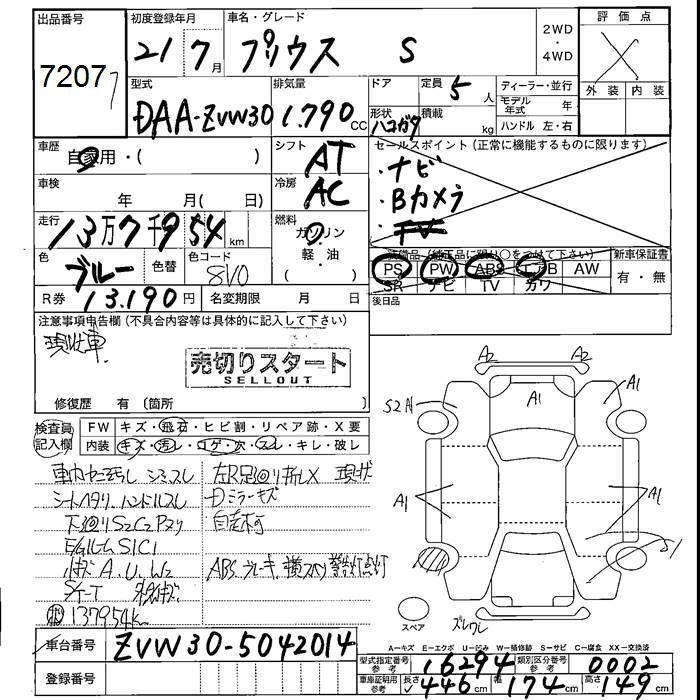 出品番号 初度登録年月 車名・グレード 2WD・4WD 評価点
7207 21 7月 プリウス S X
型式 排気量 ドア 定員 5人 ディーラー・並行 外装 内装
DAA-ZVW30 1.790CC 形状 ハコガタ 積載 kg モデル年式 年
ハンドル 左・右
車歴 自家用・( ) シフト AT セールスポイント(正常に機能するものに限ります)
車検 年 月( 日) 冷房 AC ・ナビ
・Bカメラ
・TV
走行 13万7千954km 燃料 ガソリン・軽・油
色 ブルー 色替 色コード 8V0 装備品(純正品に限り○をつけて下さい) 新車保証書
PS PW ABS エアB AW 有・無
SR ナビ TV カワ
R券 13.190円 名変期限 月 日 後日品
注意事項申告欄(不具合内容等は具体的に記入して下さい)
現状車
売切りスタート
SELLOUT
修復歴 有(箇所 )
検査員記入欄 FW キズ・飛石・ヒビ割・リペア跡・X要
内装 キズ・汚レ・コゲ・穴・スレ・キレ・破レ
シミスレ
シートヘタリ ハンドルスレ Dミラーキズ
下廻りS2C2P2 自走不可
S1C1
小キズA.U.W2 ABS.ブレーキ.横スベリ警告灯点灯
137954km
A2 A2
A1 A1
S2
A1 A1
S1
スペア
A=キズ E=エクボ U=凹み W=補修跡 S=サビ C=腐食 XX=交換済
車台番号 ZVW30-5042014
型式指定番号 参考 16294 類別区分番号 参考 0002
登録番号 車庫証明用 参考 長さ 446cm 幅 174cm 高さ 149cm